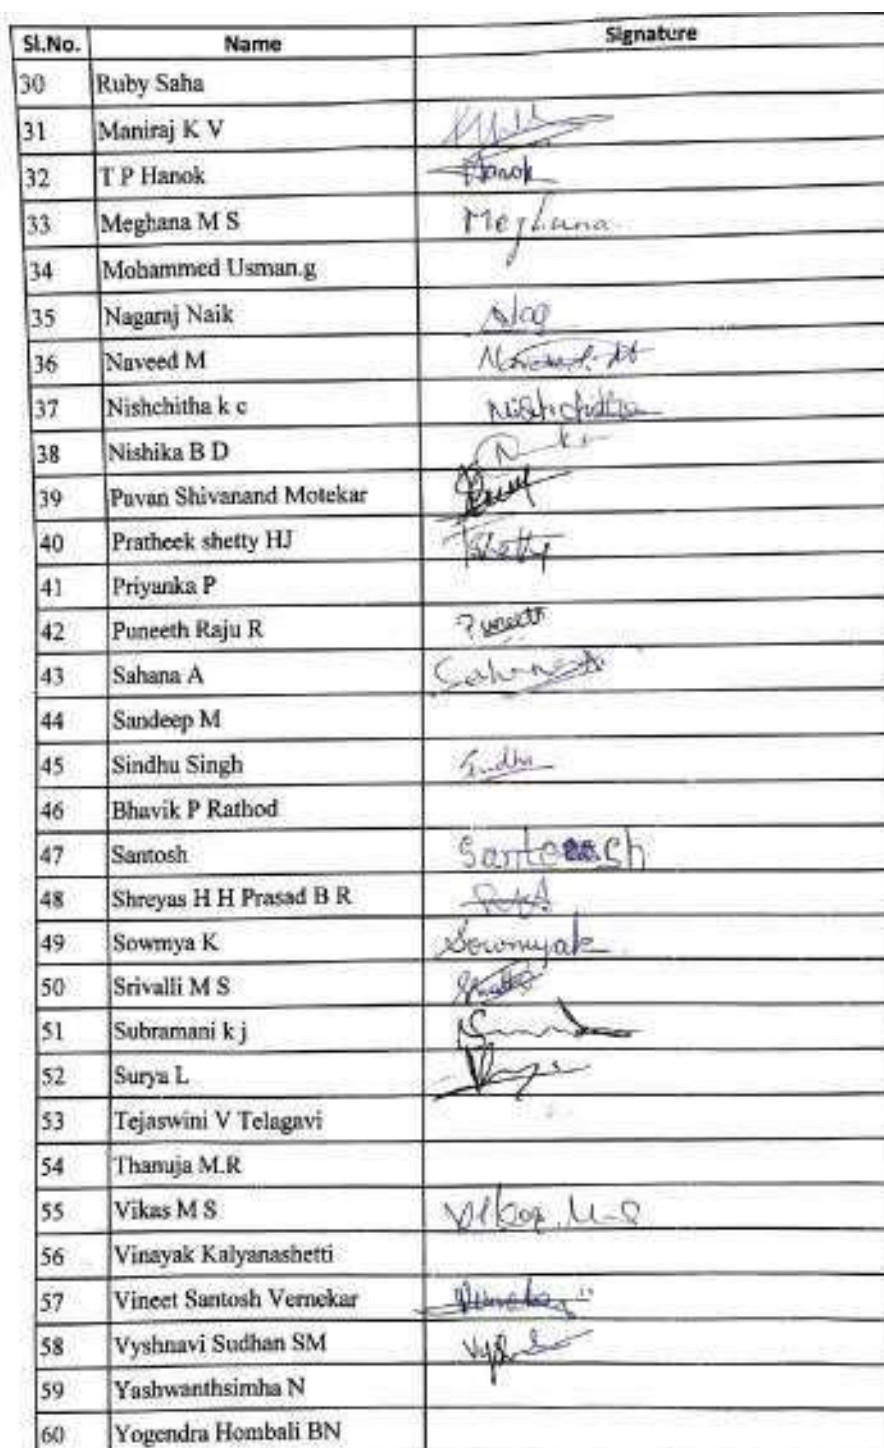 Sl.No. Name Signature
30 Ruby Saha
31 Maniraj K V
32 T P Hanok Hanok
33 Meghana M S Meghana
34 Mohammed Usman.g
35 Nagaraj Naik Nag
36 Naveed M
37 Nishchitha k c Nishchitha
38 Nishika B D
39 Pavan Shivanand Motekar
40 Pratheek shetty HJ Shetty
41 Priyanka P
42 Puneeth Raju R Puneeth
43 Sahana A Sahana
44 Sandeep M
45 Sindhu Singh Sindhu
46 Bhavik P Rathod
47 Santosh
48 Shreyas H H Prasad B R
49 Sowmya K Sowmyak
50 Srivalli M S
51 Subramani k j
52 Surya L
53 Tejaswini V Telagavi
54 Thanuja M.R
55 Vikas M S Vikas M-S
56 Vinayak Kalyanashetti
57 Vineet Santosh Vernekar
58 Vyshnavi Sudhan SM
59 Yashwanthsimha N
60 Yogendra Hombali BN